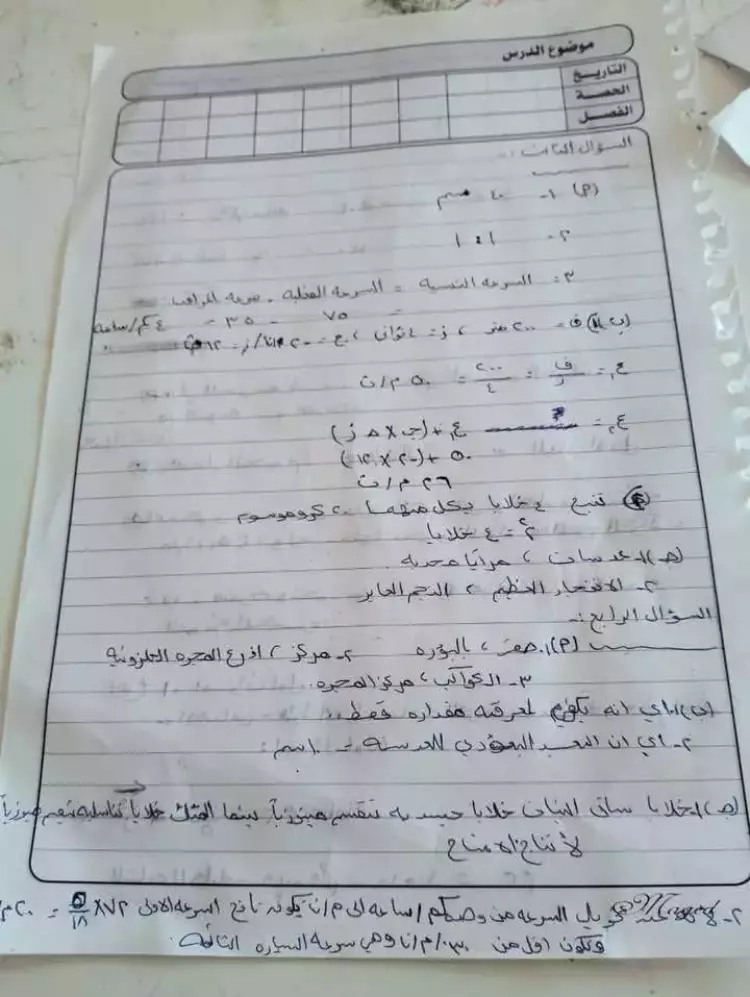 موضوع الدرس
التاريخ
الحصة
الفصل
السؤال الثالث:-
(م) ١- ٤٠ سم
٢- ١ : ١
٣- السرعه النسبية = السرعه الفعلية - سرعة المراقب
= ٧٥ - ٣٥ = ٤٠ كم/ساعة
(ب) ١) ف = ٢٠٠ متر ، ز = ٤ ثوانى ، جـ = -٢ م/ث/ ز = ١٢ ث
ع١ = ف/ز = ٢٠٠/٤ = ٥٠ م/ث
ع٢ = ع١ + (جـ × ز)
٥٠ + (-٢ × ١٢)
٢٦ م/ث
تنتج ٤ خلايا بكل منهما ٢٠ كروموسوم
٢٢ = ٤ خلايا
(جـ) ١- عدسات ، مرايا محدبه
٢- الانفجار العظيم ، النجم العابر
السؤال الرابع:-
(م) ١. صفر ، بالبؤره ٢- مركز ، اذرع المجره الحلزونية
٣- الكواكب ، مركز المجره
(ب) ١- اي انه يلزم لمعرفته مقداره فقط
٢- اي ان البعد البؤدي للعدسة = ١٠ سم
(جـ) ١- خلايا ساق النبات خلايا جسديه تنقسم ميتوزياً بينما المتك خلايا تناسليه تنقسم ميوزياً
لأنتاج الامشاج
٢- عند تحويل السرعه من كم/ساعه الى م/ث يكون ناتج السرعه الاولى ٧٢ × ٥/١٨ = ٢٠ م/
وتكون اقل من ٣٠ م/ث وهي سرعة السياره الثانية